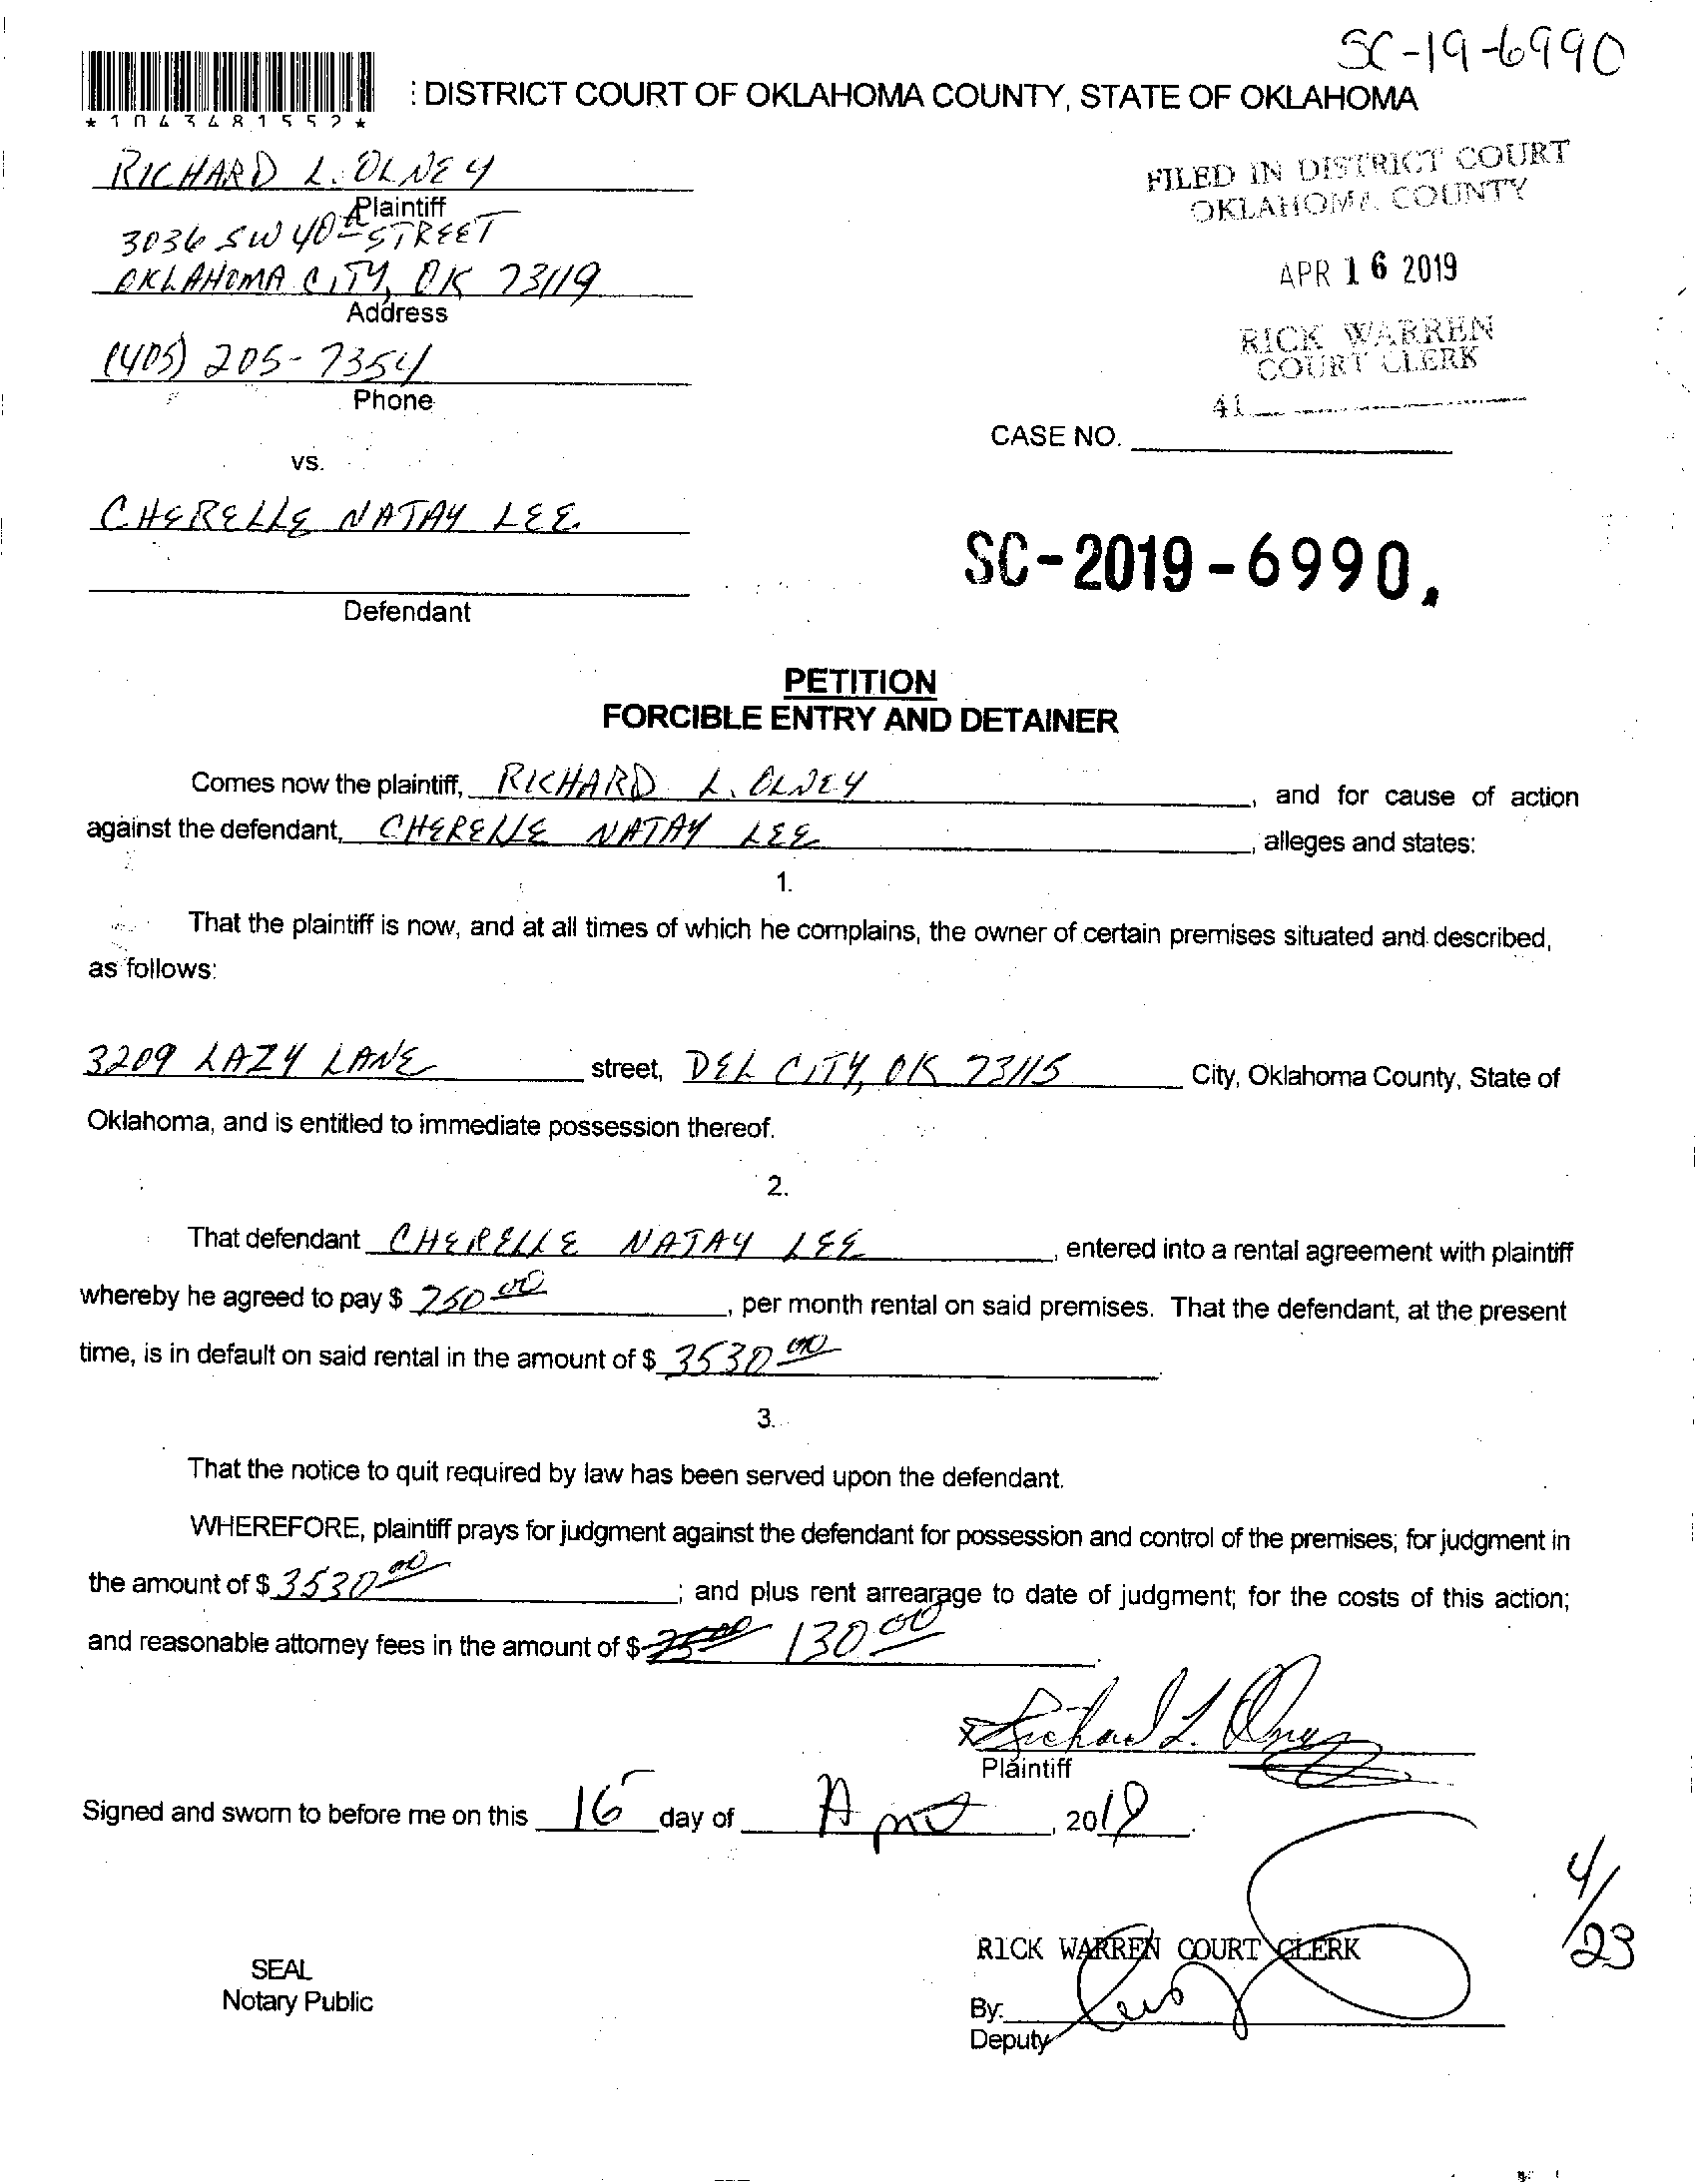 SC-19-6990
: DISTRICT COURT OF OKLAHOMA COUNTY, STATE OF OKLAHOMA
* 1 0 4 3 4 8 1 5 5 2 *
RICHARD L. OLNEY
Plaintiff
3036 SW 40th STREET
OKLAHOMA CITY, OK 73119
Address
(405) 205-7354
Phone
FILED IN DISTRICT COURT
OKLAHOMA COUNTY
APR 16 2019
RICK WARREN
COURT CLERK
41
CASE NO.
vs.
CHERELLE NATAY LEE
SC-2019-6990
Defendant
PETITION
FORCIBLE ENTRY AND DETAINER
Comes now the plaintiff, RICHARD L. OLNEY, and for cause of action
against the defendant, CHERELLE NATAY LEE, alleges and states:
1.
That the plaintiff is now, and at all times of which he complains, the owner of certain premises situated and described,
as follows:
3209 LAZY LANE street, DEL CITY, OK 73115 City, Oklahoma County, State of
Oklahoma, and is entitled to immediate possession thereof.
2.
That defendant CHERELLE NATAY LEE, entered into a rental agreement with plaintiff
whereby he agreed to pay $ 750 00, per month rental on said premises. That the defendant, at the present
time, is in default on said rental in the amount of $ 3530 00.
3.
That the notice to quit required by law has been served upon the defendant.
WHEREFORE, plaintiff prays for judgment against the defendant for possession and control of the premises; for judgment in
the amount of $ 3530 00; and plus rent arrearage to date of judgment; for the costs of this action;
and reasonable attorney fees in the amount of $ 130 00.
x Richard L. Olney
Plaintiff
Signed and sworn to before me on this 16 day of April, 2019.
4/23
RICK WARREN COURT CLERK
SEAL
Notary Public
By:
Deputy